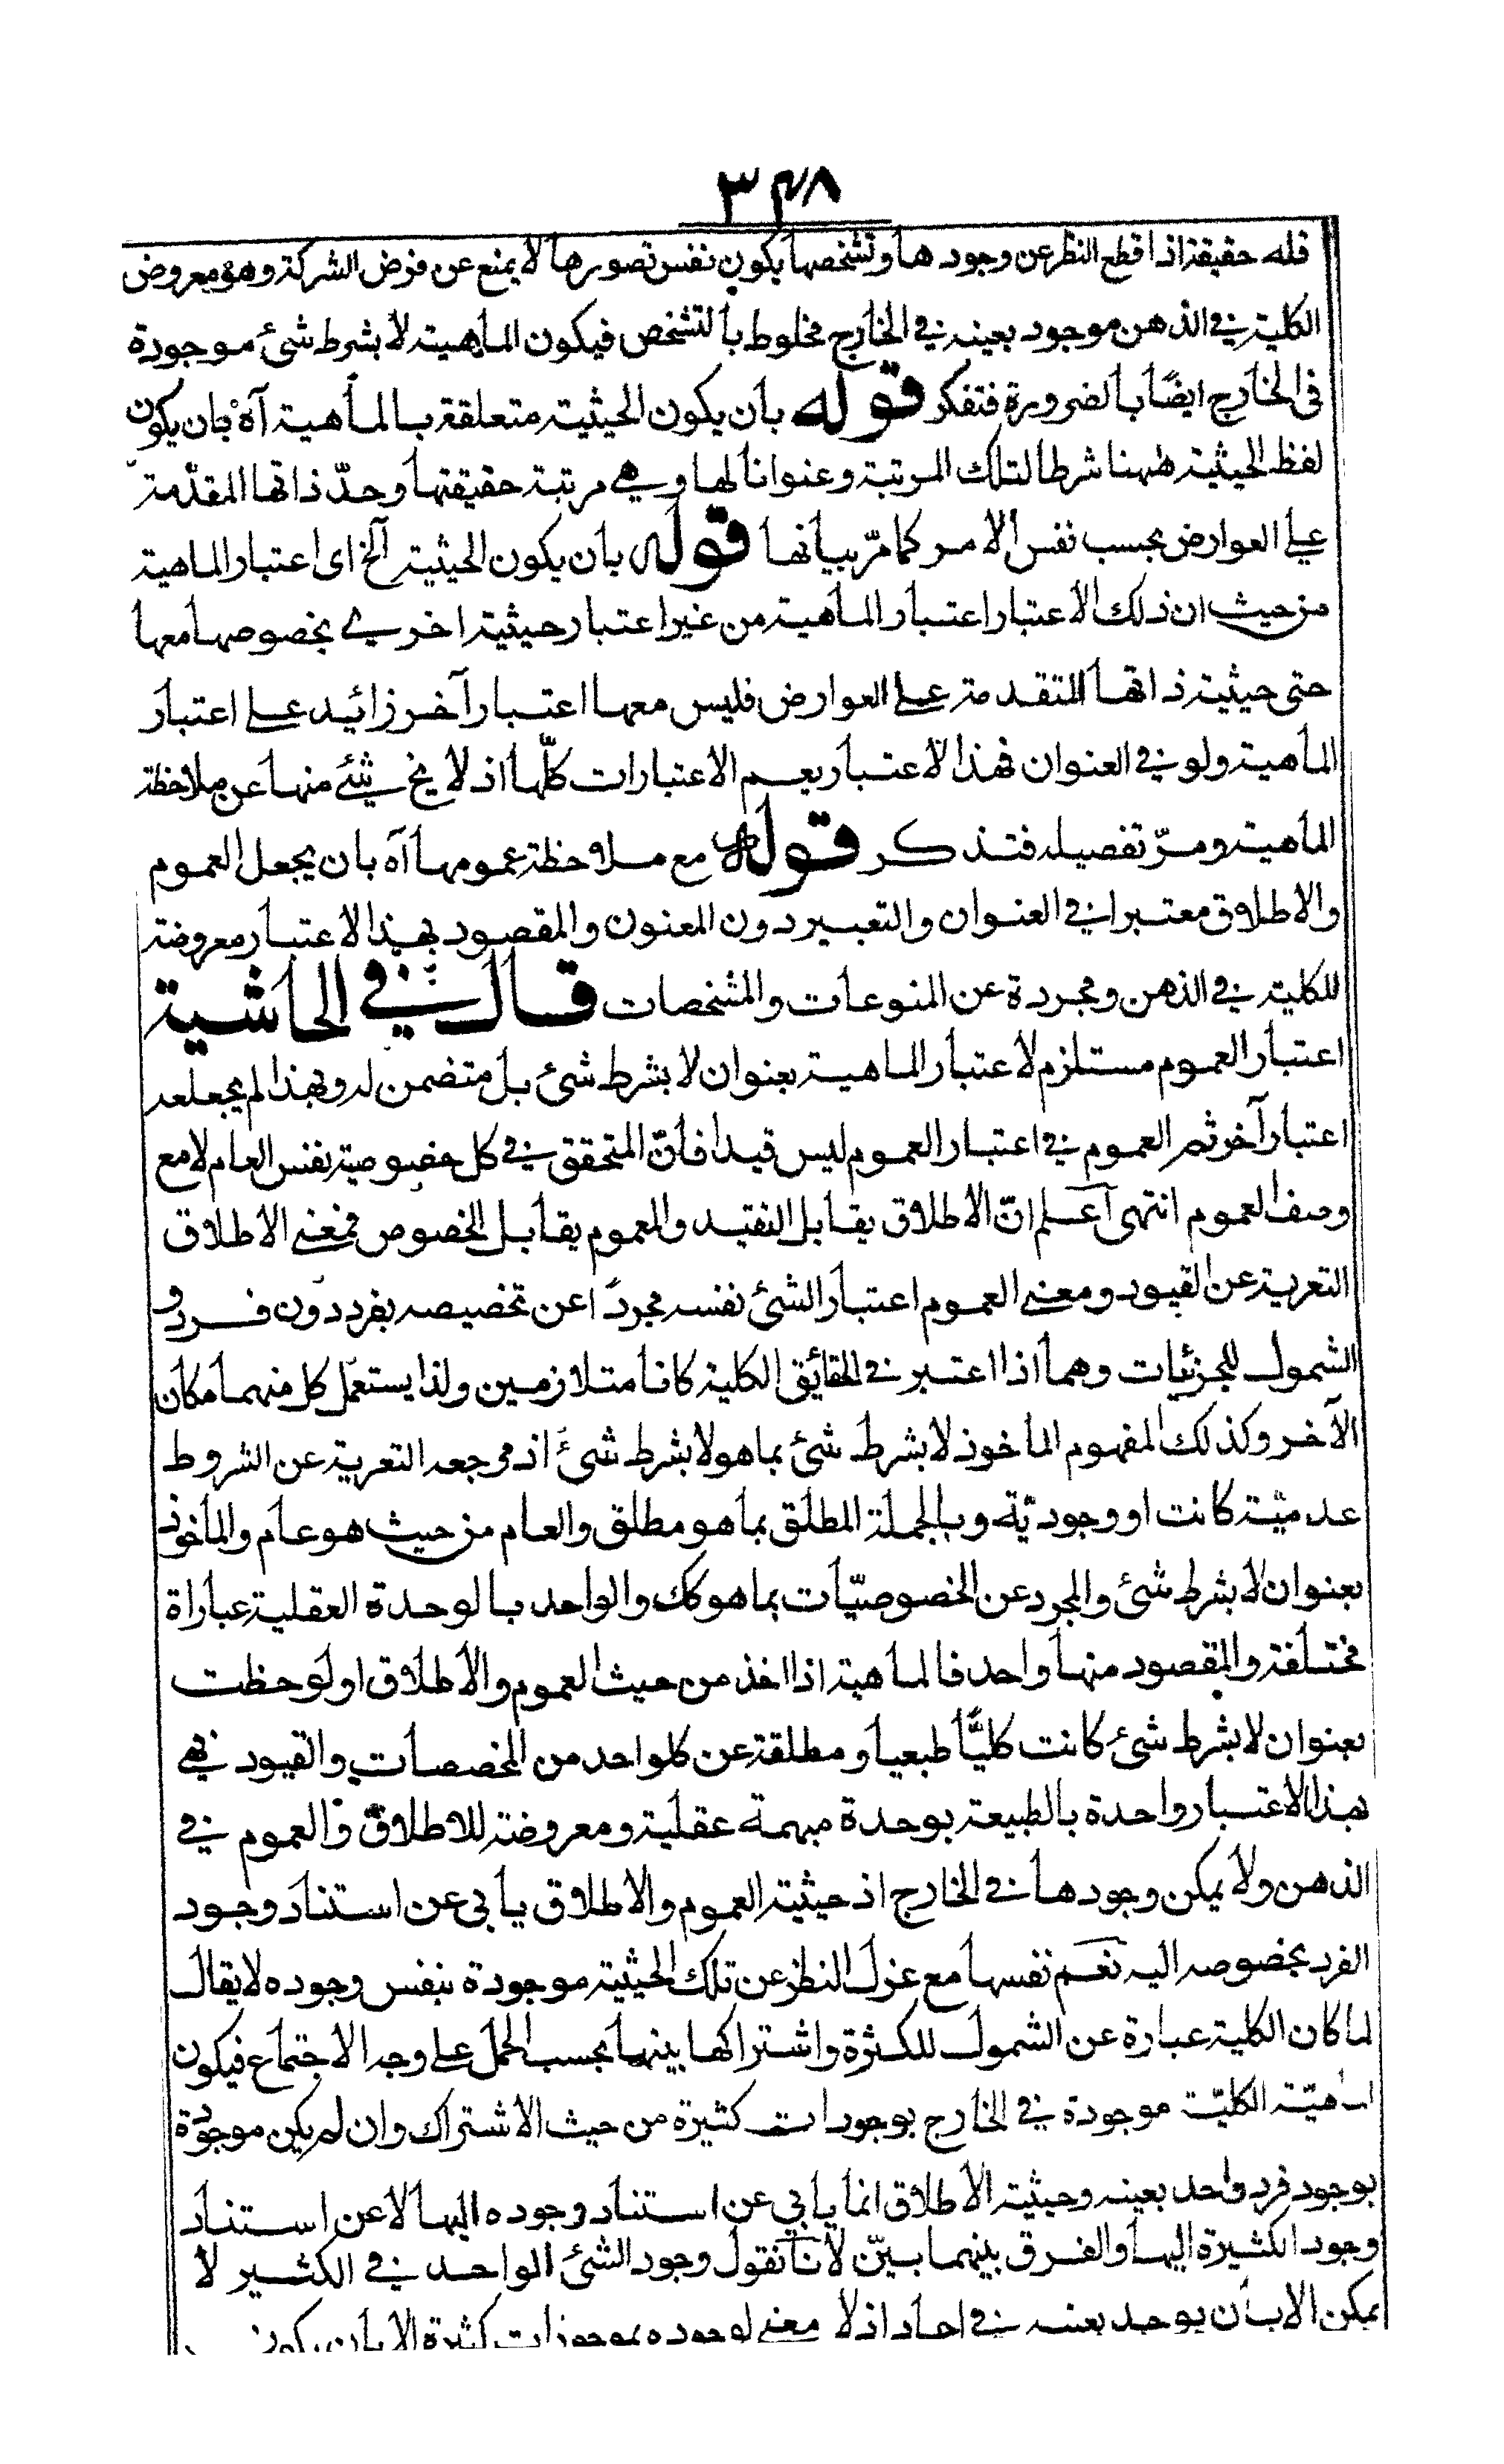 ٣٤٨
فله حقيقة اذا قطع النظر عن وجودها وتشخصها يكون نفس تصورها لا يمنع عن فرض الشركة وهو معروض
الكلية في الذهن موجود بعينه في الخارج مخلوط بالتشخص فيكون الماهية لا بشرط شئ موجودة
فى الخارج ايضًا بالضرورة فتفكر قوله بأن يكون الحيثية متعلقة بالماهية آه بان يكون
لفظ الحيثية ههنا شرطا لتلك المرتبة وعنوانا لها وهي مرتبة حقيقتها وحدّ ذاتها المقدّمة
علي العوارض بحسب نفس الامر كما مرّ بيانها قوله بان يكون الحيثية آلخ اى اعتبار الماهية
من حيث ان ذلك الاعتبار اعتبار الماهية من غير اعتبار حيثية اخرى بخصوصها معها
حتى حيثية ذاتها المتقدمة علي العوارض فليس معها اعتبار آخر زائيد علي اعتبار
الماهية ولو في العنوان فهذا الاعتبار يعم الاعتبارات كلّها اذ لا يخ شئ منها عن ملاحظة
الماهية ومرّ تفصيله فتذكر قوله مع ملاحظة عمومها آه بان يجعل العموم
والاطلاق معتبرا في العنوان والتعبير دون المعنون والمقصود بهذا الاعتبار معروضة
للكلية في الذهن ومجردة عن المنوعات والمشخصات قال في الحاشية
اعتبار العموم مستلزم لاعتبار الماهية بعنوان لا بشرط شئ بل متضمن له وبهذا لم يجعله
اعتبار آخر ثم العموم في اعتبار العموم ليس قيدا فانّ المتحقق في كل خصوصية نفس العام لا مع
وصف العموم انتهى آعلم انّ الاطلاق يقابل التقيد والعموم يقابل الخصوص فمعني الاطلاق
التعرية عن القيود ومعني العموم اعتبار الشئ نفسه مجردًا عن تخصيصه بفرد دون فرد و
الشمول للجزئيات وهما اذا اعتبر في الحقائق الكلية كانا متلازمين ولذا يستعمل كل منهما مكان
الآخر وكذلك المفهوم الماخوذ لا بشرط شئ بما هو لا بشرط شئ اذ مرجعه التعرية عن الشروط
عدميّة كانت او وجوديّة وبالجملة المطلق بما هو مطلق والعام من حيث هو عام والماخوذ
بعنوان لا بشرط شئ والمجرد عن الخصوصيّات بما هو كك والواحد بالوحدة العقلية عباراة
مختلفة والمقصود منها واحد فالماهية اذا اخذ من حيث العموم والاطلاق او لوحظت
بعنوان لا بشرط شئ كانت كليًّا طبعيا ومطلقة عن كلواحد من المخصصات والقيود فهي
بهذا الاعتبار واحدة بالطبيعة بوحدة مبهمة عقلية ومعروضة للاطلاق والعموم في
الذهن ولا يمكن وجودها في الخارج اذ حيثية العموم والاطلاق يأبي عن استناد وجود
الفرد بخصوصه اليه نعم نفسها مع عزل النظر عن تلك الحيثية موجودة بنفس وجوده لا يقال
لما كان الكلية عبارة عن الشمول للكثرة واشتراكها بينها بحسب الحمل علي وجه الاجتماع فيكون
الماهيّة الكليّة موجودة في الخارج بوجودات كثيرة من حيث الاشتراك وان لم يكن موجودة
بوجود فرد واحد بعينه وحيثية الاطلاق انما يابي عن استناد وجوده اليها لا عن استناد
وجود الكثيرة اليها والفرق بينهما بيّن لانا نقول وجود الشئ الواحد في الكثير لا
يمكن الا بان يوجد بعينه في احاد اذ لا معني لوجوده بموجودات كثيرة الا بان يكون